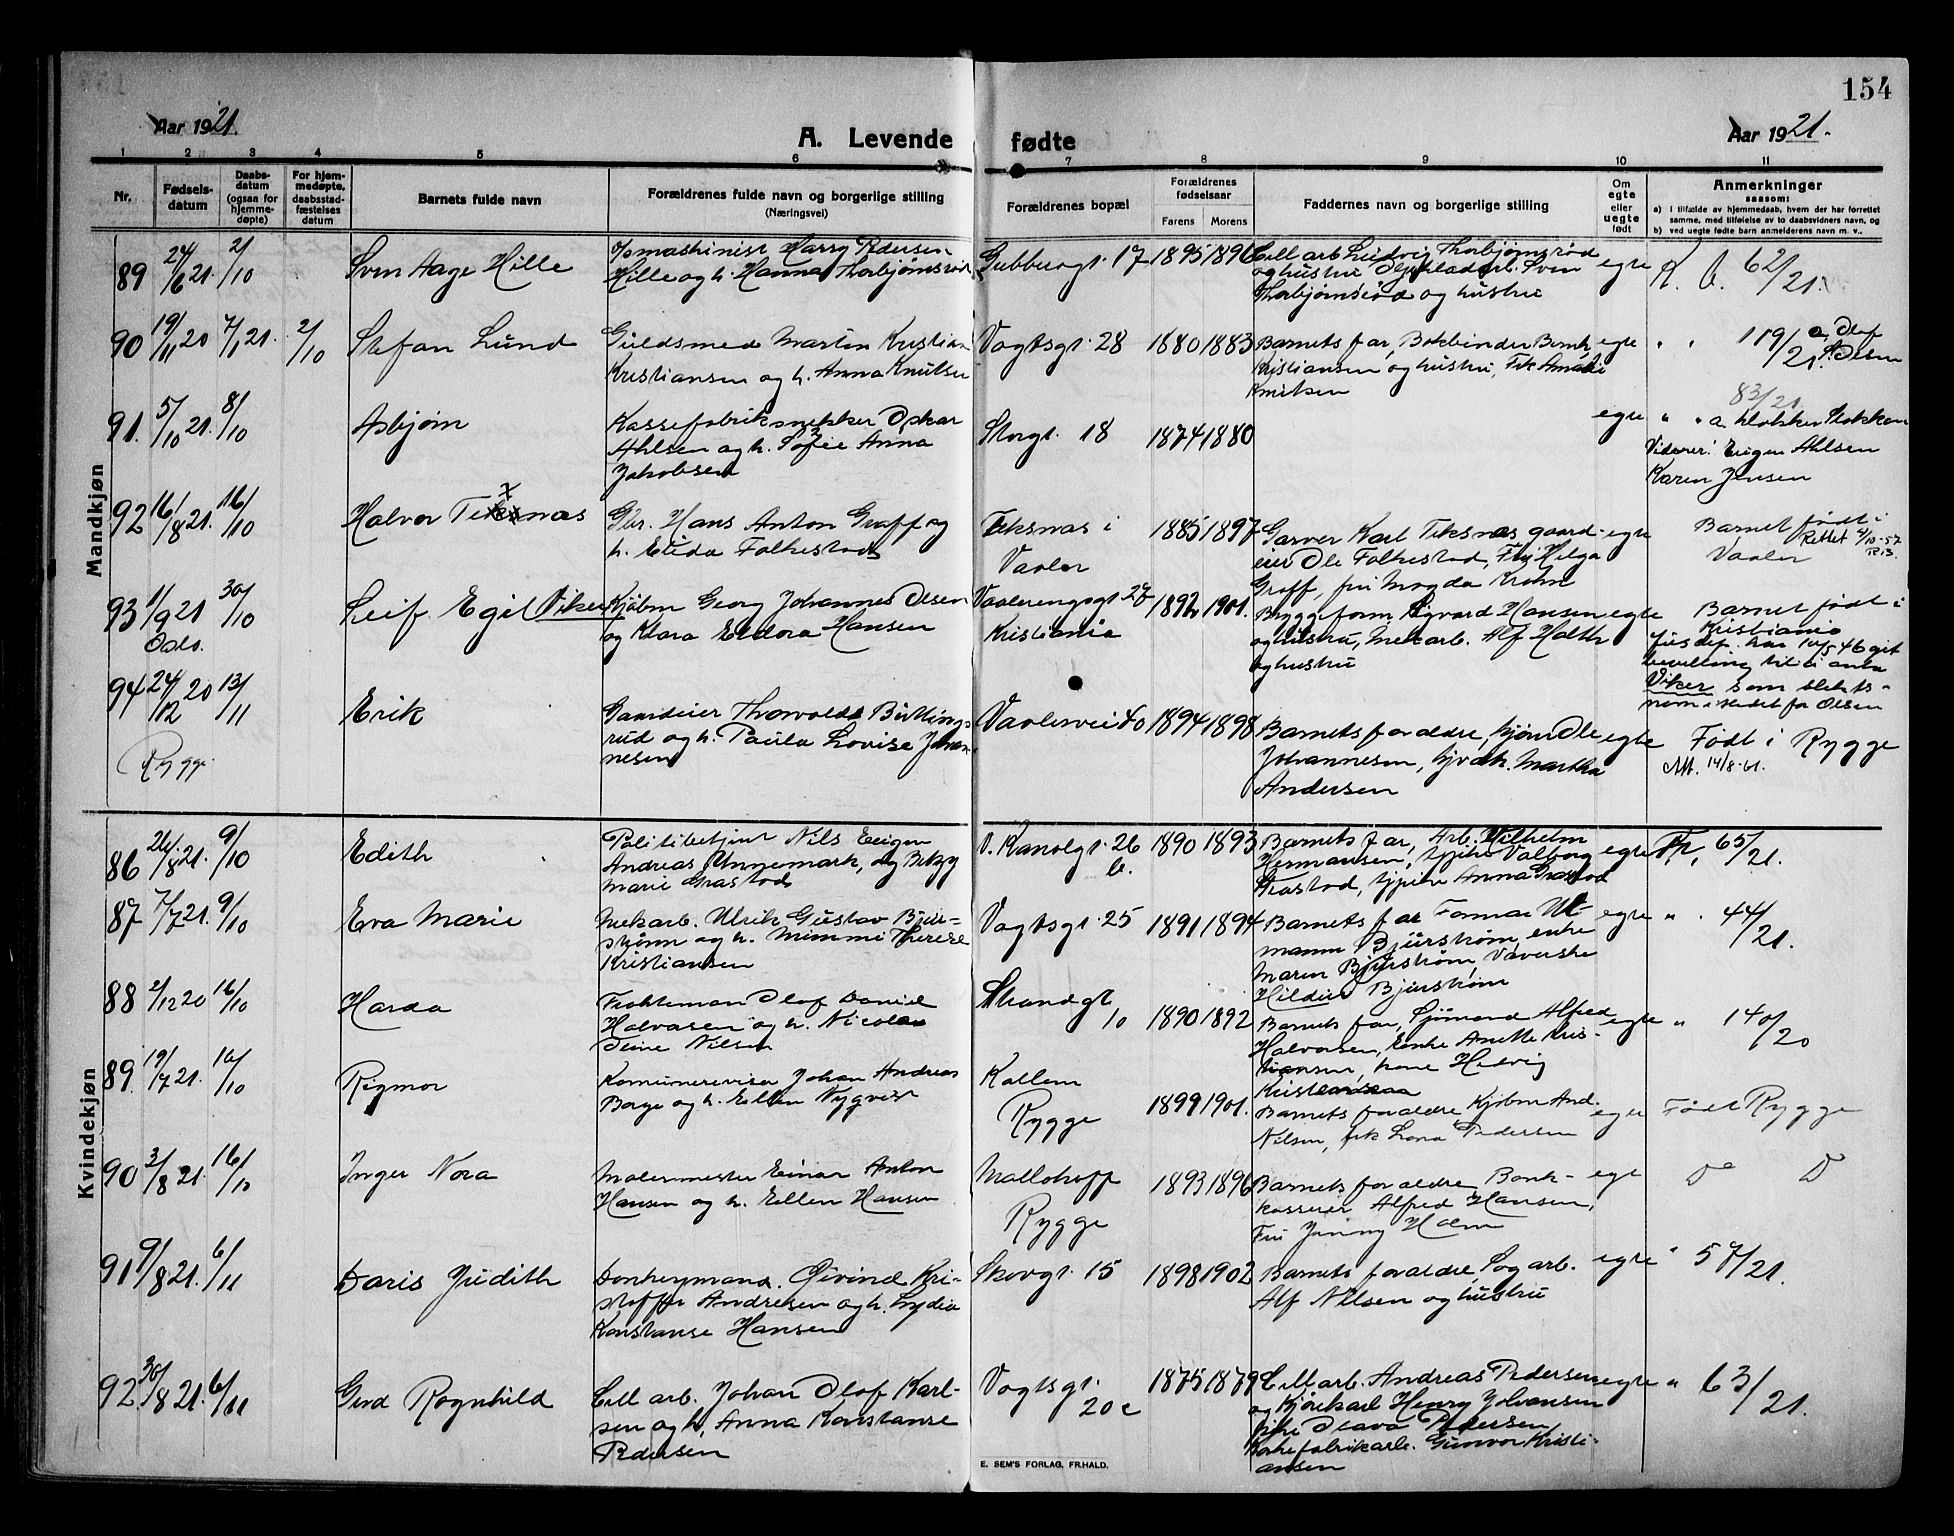 154
Aar 1921.
A. Levende fødte
Aar 1921.
1 2 3 4 5 6 7 8 9 10 11
Nr.
Fødsels-
datum
Daabs-
datum
(ogsaa for
hjemme-
døpte)
For hjem-
medøpte,
daabsstad-
fæstelses
datum
Barnets fulde navn
Forældrenes fulde navn og borgerlige stilling
(Næringsvei)
Forældrenes bopæl
Forældrenes
fødselsaar
Farens Morens
Faddernes navn og borgerlige stilling
Om
egte
eller
uegte
født
Anmerkninger
saasom:
a) i tilfælde av hjemmedaab, hvem der har forrettet
samme, med tilføielse av to daabsvidners navn, og
b) ved uegte fødte barn anmelderens navn m. v..
Mandkjøn
89 24/6 21. 2/10 Sven Aage Hille
Hille og h. Hanna Thorbjørnsrød
Gubbeogt. 17 1895 1896
arb. Ludvig Thorbjørnsrød
og hustru Sven
Thorbjørnsrød og hustru
egte 62/21.
90 19/11 20 7/1 21. 2/10 Stefan Lund
Guldsmed Martin Kristian
Kristiansen og h. Anna Knutsen
Vogtsgt. 28 1880 1883
Barnets far, Bokbinder
Kristiansen og hustru, Frk
Knutsen
egte " " 119/21. Olaf
Olsen
83/21
91. 5/10 21. 8/10 Asbjørn
Kassefabriksnekker Oskar
Ahlsen og h. Sofie Anna
Jakobsen
Storgt. 18 1874 1880
egte " " a klokker Stokken
Vidner: Ahlsen
Karen Jensen
92 16/8 21. 16/10 Halvor Teksnæs
Gbr. Hans Anton Graff og
h. Elida Folkestad
Teksnæs i
Vaaler
1885 1897
Garver Karl Teksnæs gaard-
eier Ole Folkestad, Frk Helga
Graff, fru Magda Krohn
egte Barnet født i
Vaaler
Rettet 4/10-57
93 1/9 21 30/10 Leif Egil Viker
Oslo.
Kjøbm Georg Johannes Olsen
og Klara Eldora Hansen
Vaalerengsgt 27
Kristiania
1892 1901.
Byggeform. Sigvard Hansen
og hustru, Mekarb. Alf Holth
og hustru
egte Barnet født i
Kristiania
Jusdep. har 10/5 46 git
bevilling til å anta
Viker som slekts-
navn i stedet for Olsen
94 24/12 20 13/11 Erik
Rygge
Gaardeier Thorvald Butlings-
rud og h. Paula Lovise Johan-
nesen
Vaalervei 40 1894 1898
Barnets foraldre, kjøm Ole
Johannesen, Martha
Andersen
egte Født i Rygge
Att. 14/8-61.
Kvindekjøn
86 26/8 21. 9/10 Edith
Politibetjent Nils Eugen
Andreas Unnemark, og Betzy
Marie Grastad
V. Kanalgt. 26
b.
1890 1893
Barnets far, Arb. Wilhelm
Hermansen, pike Valborg
Grastad, pike Anna Grastad
egte Fr. 65/21.
87 7/7 21. 9/10 Eva Marie
Mekarb. Ulrik Gustav Bjur-
strøm og h. Mimmi Therese
Kristiansen
Vogtsgt. 25 1891 1894
Barnets far Formar
mann Bjurstrøm, enke
Maren Bjurstrøm, Væverske
Hildur Bjurstrøm
egte " " 44/21.
88 2/12 20 16/10 Harda
Fraktemann Olof Daniel
Halvorsen og h. Nicolau
Nilsen
Strandgt
10
1890 1892
Barnets far, Sjømand Alfred
Halvorsen, Enke Anette Kris-
tiansen, Hedvig
Kristiansen
egte " 140/20
89. 19/7 21. 16/10 Rigmor
Komunerevisor Johan Andreas
Borge og h. Ellen Nygvist
Kallem
Rygge
1899 1901.
Barnets foraldre Kjøbm And.
Nilsen, frk Lona Pedersen
egte Født Rygge
90 3/8 21. 16/10 Inger Nora
Malermester Einar Anton
Hansen og h. Ellen Hansen
Mallohoff
Rygge
1893 1896
Barnets foraldre Bank-
kasserer Alfred Hansen,
Fru Jenny Holm
egte Do D
91 9/8 21. 6/11 Doris Judith
Donkeymand. Øivind Kri-
stoffer Andresen og h. Lydia
Konstanse Hansen
Skovgt. 15 1898 1902
Barnets foraldre, Sogarb.
Alf Nilsen og hustru
egte " 57/21.
92. 30/8 21. 6/11 Gerd Ragnhild
Cell arb. Johan Olof Karl-
sen og h. Anna Konstanse
Pedersen
Vogtsgt.
20c
1875 1879
Cell arb. Andreas Pedersen
og Kjørekarl Henry Johansen
pike Olava Pedersen,
fabrikarb. Gunvor Kristi-
ansen
egte " 63/21.
E. SEM'S FORLAG, FR.HALD.